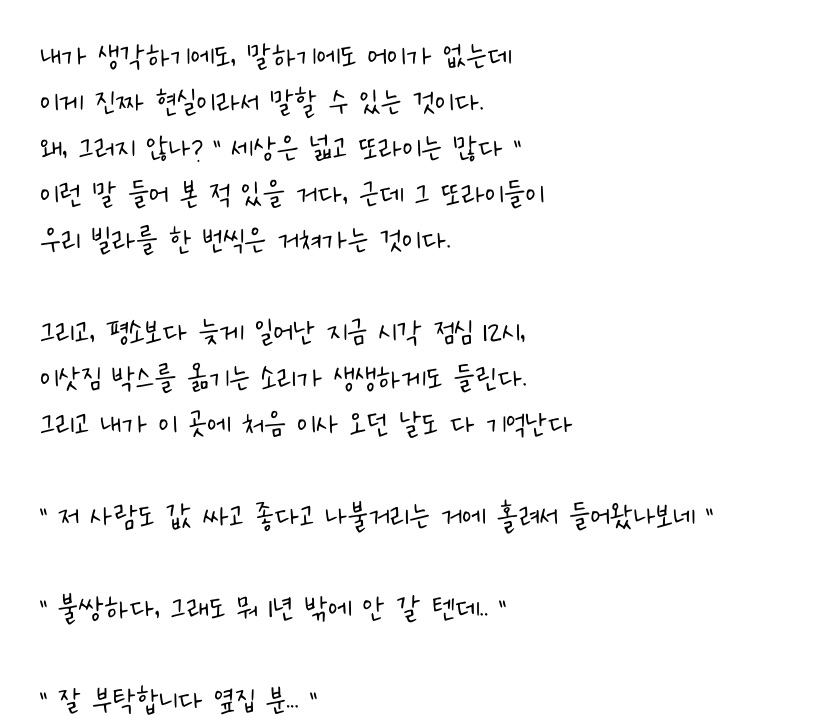 내가 생각하기에도, 말하기에도 어이가 없는데
이게 진짜 현실이라서 말할 수 있는 것이다.
왜, 그러지 않나? " 세상은 넓고 또라이는 많다 "
이런 말 들어 본 적 있을 거다, 근데 그 또라이들이
우리 빌라를 한 번씩은 거쳐가는 것이다.
그리고, 평소보다 늦게 일어난 지금 시각 점심 12시,
이삿짐 박스를 옮기는 소리가 생생하게도 들린다.
그리고 내가 이 곳에 처음 이사 오던 날도 다 기억난다
" 저 사람도 값 싸고 좋다고 나불거리는 거에 홀려서 들어왔나보네 "
" 불쌍하다, 그래도 뭐 1년 밖에 안 갈 텐데.. "
" 잘 부탁합니다 옆집 분... "